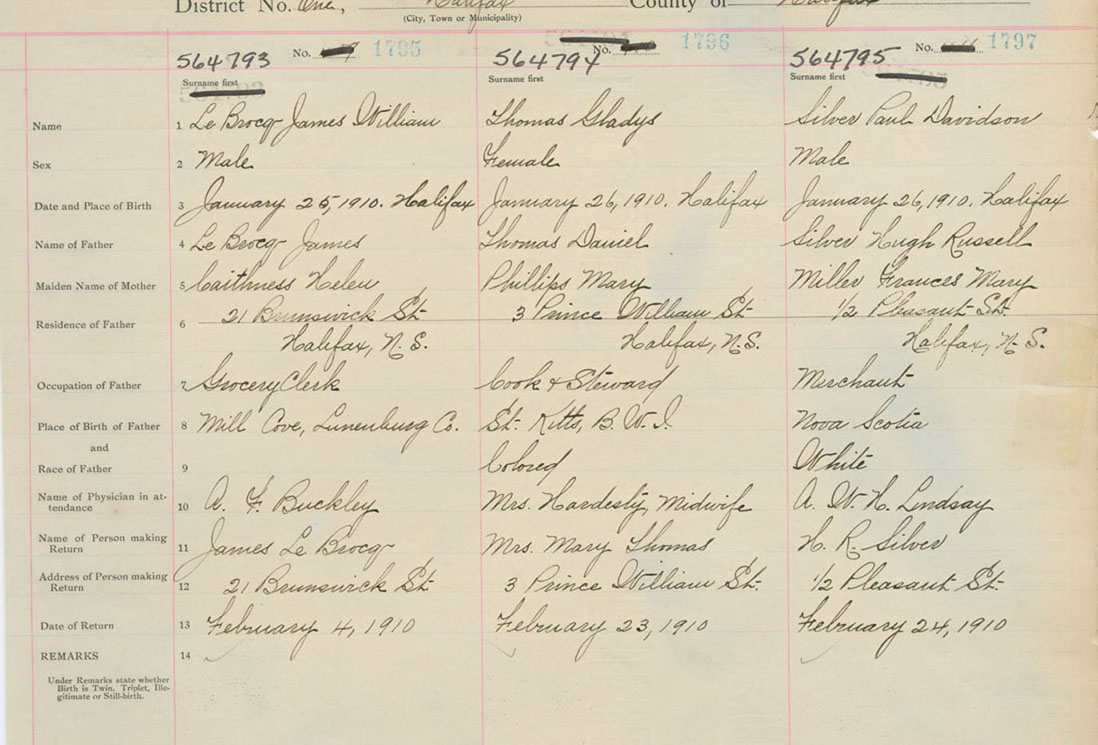 District No. One, Halifax County of Halifax
(City, Town or Municipality)
564793 No. 1795 564794 No. 1796 564795 No. 1797
Surname first Surname first Surname first
Name 1 Le Brocq James William Thomas Gladys Silver Paul Davidson
Sex 2 Male Female Male
Date and Place of Birth 3 January 25, 1910. Halifax January 26, 1910. Halifax January 26, 1910. Halifax
Name of Father 4 Le Brocq James Thomas Daniel Silver Hugh Russell
Maiden Name of Mother 5 Caithness Helen Phillips Mary Miller Frances Mary
Residence of Father 6 21 Brunswick St. 3 Prince William St. 1/2 Pleasant St.
Halifax, N.S. Halifax, N.S. Halifax, N.S.
Occupation of Father 7 Grocery Clerk Cook + Steward Merchant
Place of Birth of Father 8 Mill Cove, Lunenburg Co. St. Kitts, B.W.I. Nova Scotia
and
Race of Father 9 Colored White
Name of Physician in at-
tendance 10 A. F. Buckley Mrs. Hardesty, Midwife A. W. H. Lindsay
Name of Person making
Return 11 James Le Brocq Mrs. Mary Thomas H. R. Silver
Address of Person making
Return 12 21 Brunswick St. 3 Prince William St. 1/2 Pleasant St.
Date of Return 13 February 4, 1910 February 23, 1910 February 24, 1910
REMARKS 14
Under Remarks state whether
Birth is Twin, Triplet, Ille-
gitimate or Still-birth.